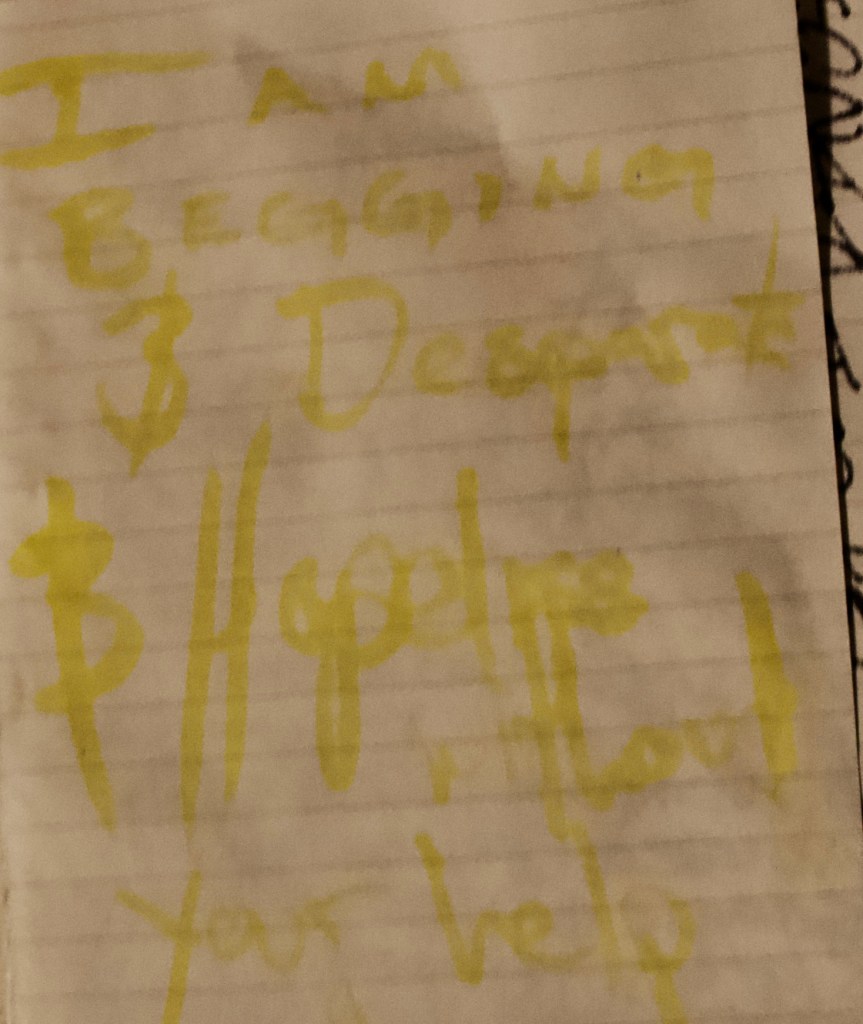 I AM
BEGGING
& Desperate
& Hopeless
without
your help